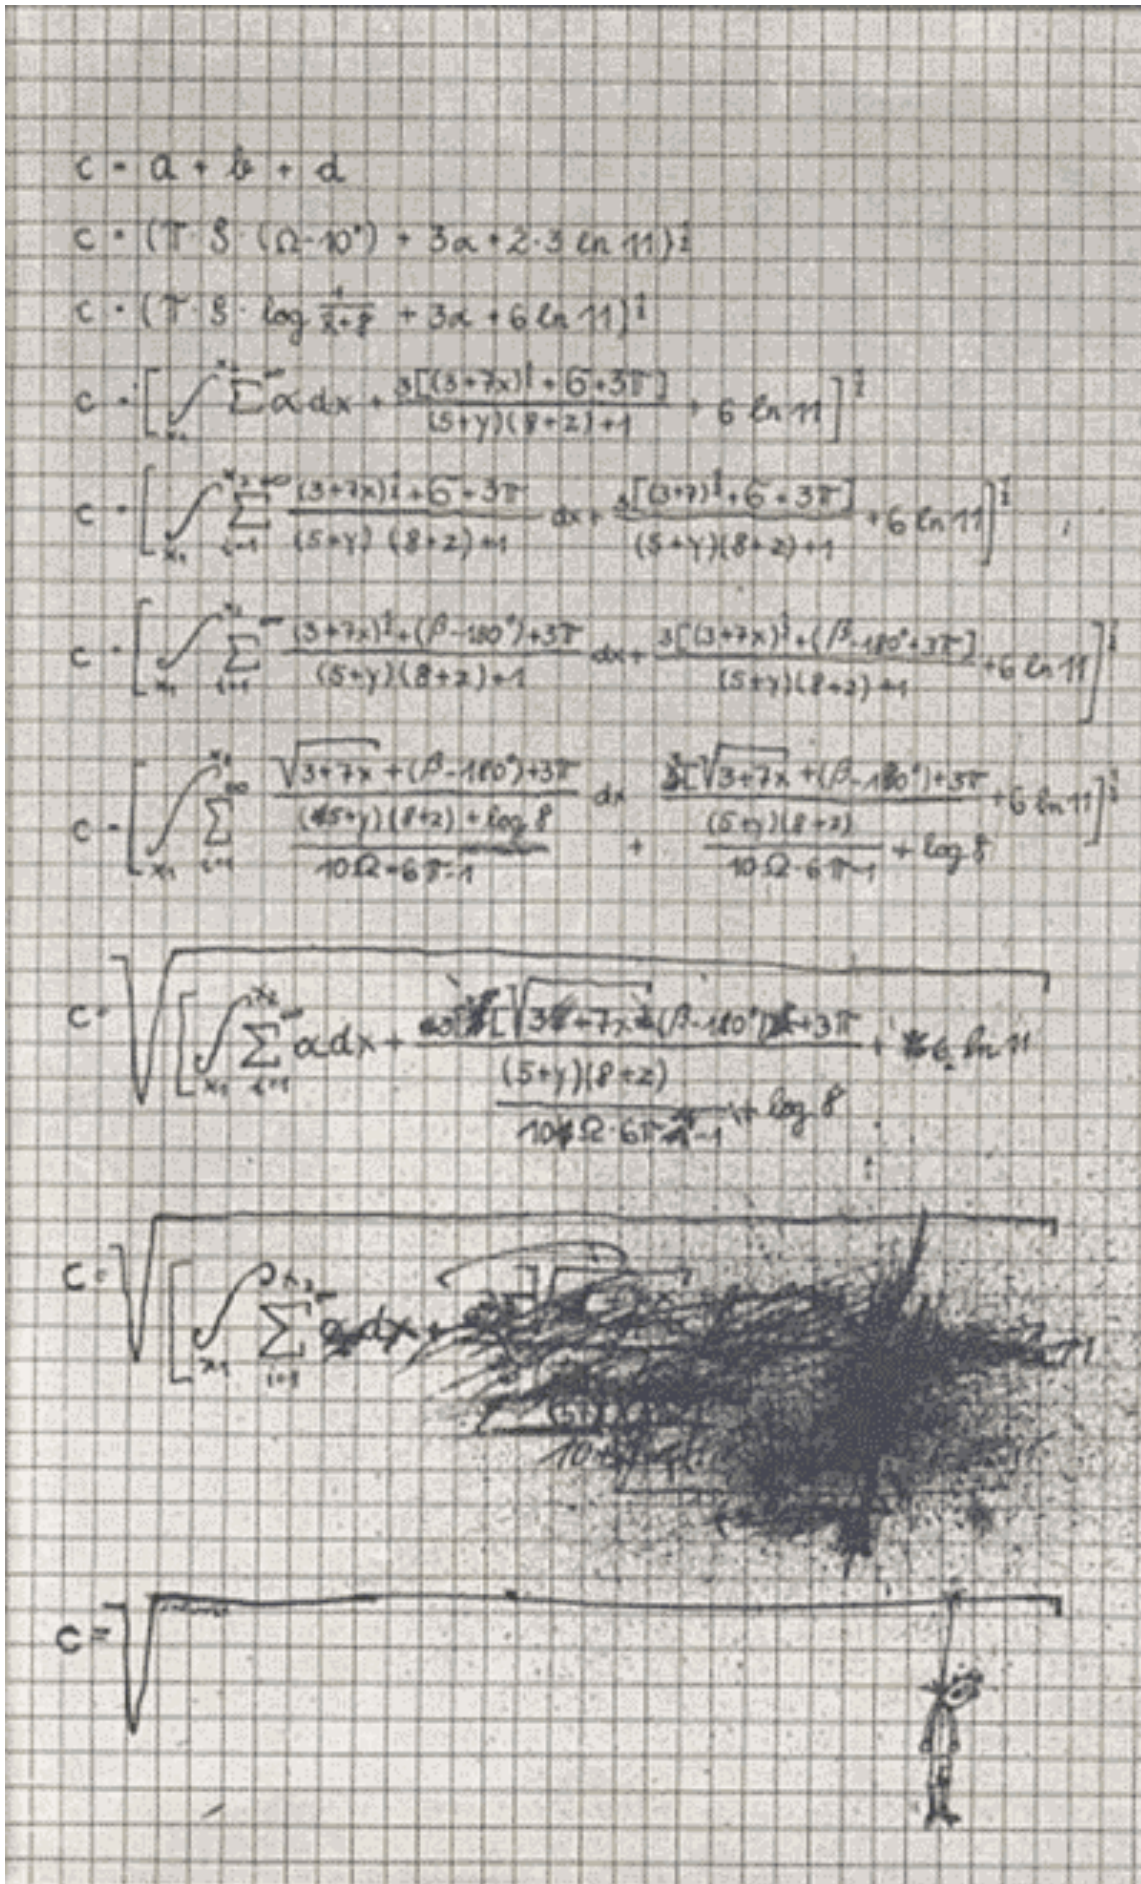 c = a + b + d
c = (π · S · (Ω-10°) + 3α + 2·3 ln 11)^½
c = (π · S · log 1/(x+8) + 3α + 6 ln 11)^½
c = [∫x₁^x₂ Σ^∞ α dx + 3[(3+7x)^½ + 6 + 3π] / (5+y)(8+z)+1 + 6 ln 11]^½
c = [∫x₁^x₂ Σi=1^+∞ (3+7x)^½ + 6 + 3π / (5+y) (8+z)+1 dx + 3[(3+7)^½ + 6 + 3π] / (5+y)(8+z)+1 + 6 ln 11]^½
c = [∫x₁^x₂ Σi=1^∞ (3+7x)^½ + (β-180°)+3π / (5+y)(8+z)+1 dx + 3[(3+7x)^½ + (β-180°+3π] / (5+y)(8+z)+1 + 6 ln 11]^½
c = [∫x₁^x₂ Σi=1^∞ √3+7x + (β-180°)+3π / (5+y)(8+z) + log 8 / 10Ω+6π-1 dx + 3[√3+7x + (β-180°)+3π / (5+y)(8+z) / 10Ω·6π-1 + log 8 + 6 ln 11]^½
c = √[∫x₁^x₂ Σi=1^∞ α dx + 3[√3+7x (β-180°)+3π / (5+y)(8+z) / 10Ω·6π-1 + log 8 + 6 ln 11
c = √[∫x₁^x₂ Σi=1^∞ dx +
c = √